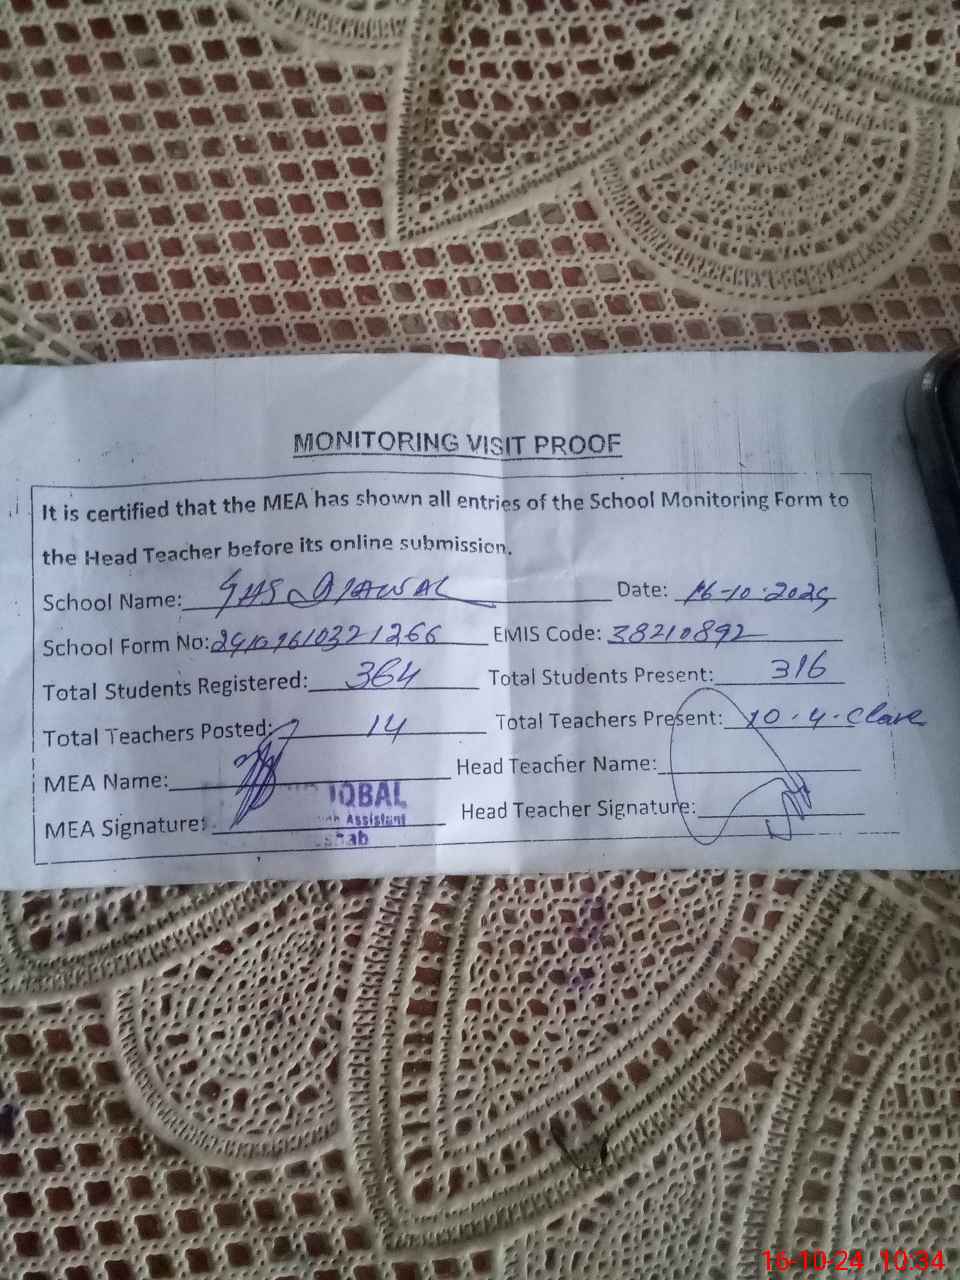 MONITORING VISIT PROOF
It is certified that the MEA has shown all entries of the School Monitoring Form to
the Head Teacher before its online submission.
School Name: GHS Date: 16-10-2024
School Form No: EMIS Code: 38210892
Total Students Registered: 364 Total Students Present: 316
Total Teachers Posted: 14 Total Teachers Present: 10 - 4
MEA Name: Head Teacher Name:
IQBAL
MEA Signature: Assistant Head Teacher Signature:
16-10-24 10:34